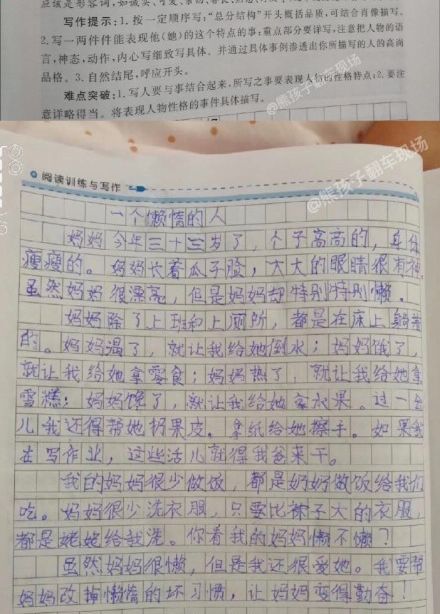 写作提示:1.按一定顺序写:"总分结构"开头概括品质,可结合肖像描写。
2.写一两件件能表现他(她)的这个特点的事;重点部分要详写,注意把人物的语
言,神态,动作,内心写细致写具体。并通过具体事例渗透出你所描写的人的高尚
品格。3.自然结尾,呼应开头。
难点突破:1.写人要与事结合起来,所写之事要表现人物的性格特点;2.要注
意详略得当。将表现人物性格的事件具体描写。
@熊孩子翻车现场
阅读训练与写作
@熊孩子翻车现场
一个懒惰的人
妈妈今年三十三岁了,个子高高的,身体
瘦瘦的。妈妈长着瓜子脸,大大的眼睛很有神。
虽然妈妈很漂亮,但是妈妈却特别特别懒。
妈妈除了上班和上厕所,都是在床上躺着
的。妈妈渴了,就让我给她倒水;妈妈饿了,
就让我给她拿零食;妈妈热了,就让我给她拿
雪糕;妈妈馋了,就让我给她拿水果。过一会
儿我还得帮她扔果皮。拿纸给她擦手。如果我
在写作业,这些活儿就得我爸来干。
我的妈妈很少做饭,都是奶奶做饭给我们
吃。妈妈很少洗衣服,只要比袜子大的衣服,
都是姥姥给我洗。你看我的妈妈懒不懒?
虽然妈妈很懒,但是我还很爱她。我要帮
妈妈改掉懒惰的坏习惯,让妈妈变得勤奋!